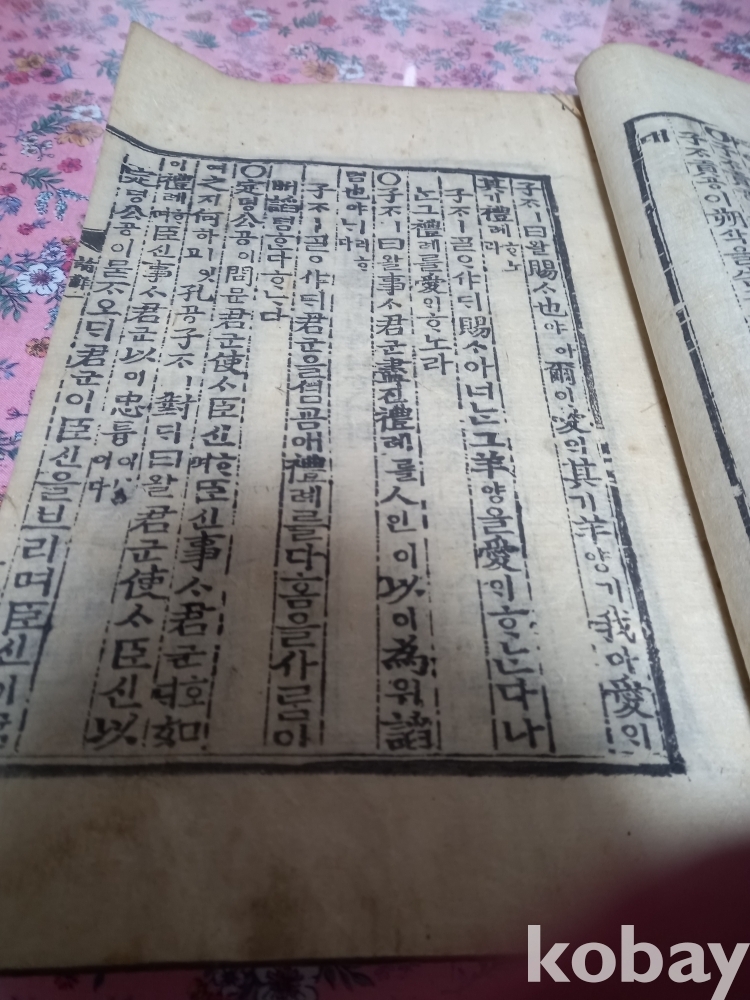 子ᄌ貢공이朔삭을
대
子ᄌㅣ曰왈賜ᄉ也야아爾이愛ᄋᆡ其기羊양가我아愛ᄋᆡ
其기禮례ᄒᆞ노라
子ᄌㅣᄀᆞᆯᄋᆞ샤ᄃᆡ賜ᄉ아너ᄂᆞᆫ그羊양을愛ᄋᆡᄒᆞᄂᆞᆫ다나
ᄂᆞᆫ그禮례를愛ᄋᆡᄒᆞ노라
○子ᄌㅣ曰왈事ᄉ君군盡진禮례를人인이以이為위諂
텸也야ㅣ라ᄒᆞᄂᆞ다
子ᄌㅣᄀᆞᆯᄋᆞ샤ᄃᆡ君군을셤굠애禮례를다홈을사ᄅᆞᆷ이
ᄡᅥ諂텸ᄒᆞᆫ다ᄒᆞᄂᆞ다
○定뎡公공이問문君군使ᄉ臣신ᄒᆞ며臣신事ᄉ君군호ᄃᆡ如
여之지何하ㅣ잇고孔공子ᄌㅣ對ᄃᆡ曰왈君군使ᄉ臣신以
이禮례ᄒᆞ며臣신事ᄉ君군以이忠튱이니이다
定뎡公공이묻ᄌᆞ오ᄃᆡ君군이臣신을브리며臣신이
論語一
kobay